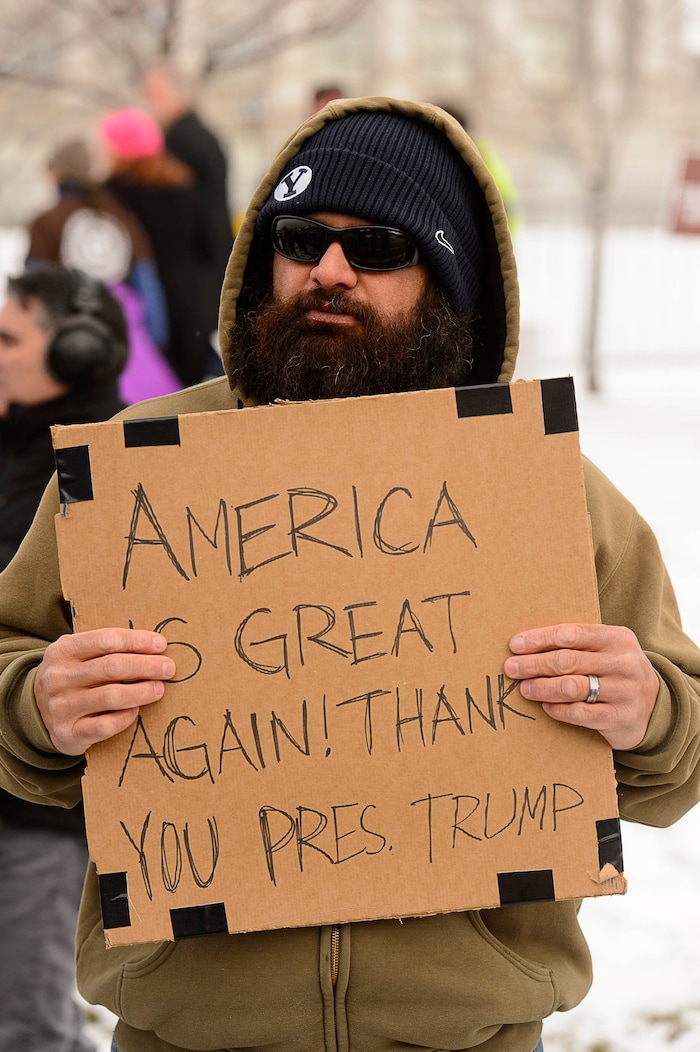 Y
AMERICA
IS GREAT
AGAIN! THANK
YOU PRES. TRUMP